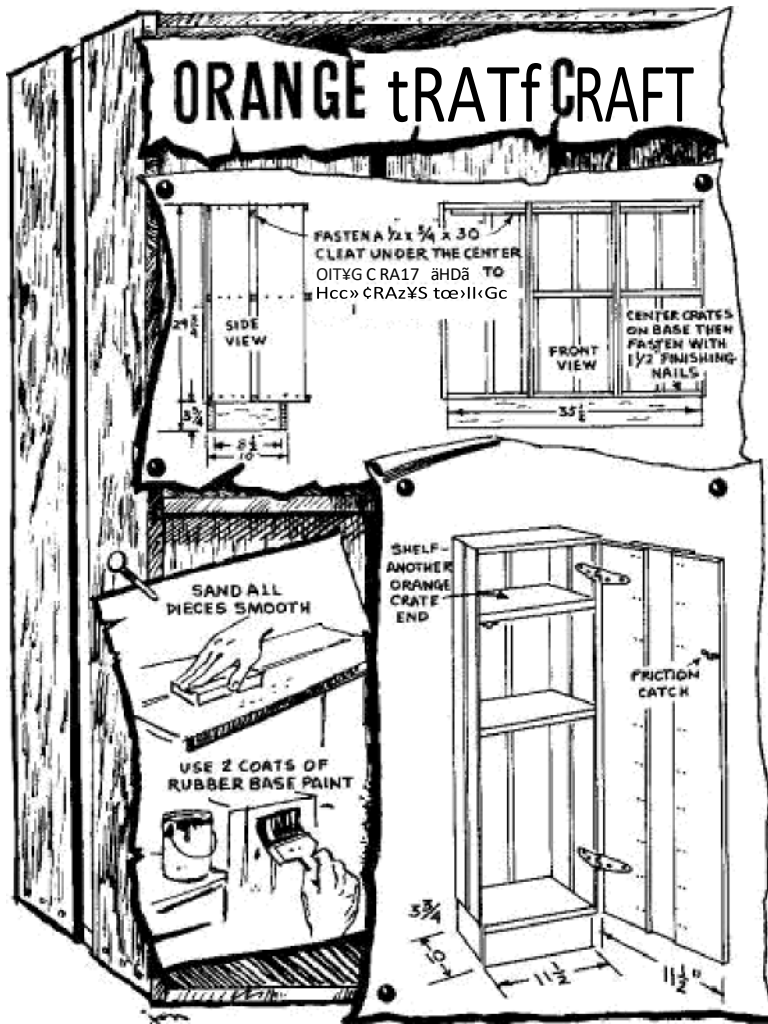 ORANGE tRATf CRAFT
FASTEN A ½ x ¾ x 30
CLEAT UNDER THE CENTER
OIT¥G C RA17 äHDã TO
Hcc» ¢RAz¥S tœ›II‹Gc
29
SIDE
VIEW
3¾
8½
10
FRONT
VIEW
CENTER CRATES
ON BASE THEN
FASTEN WITH
1½" FINISHING
NAILS
35½
SAND ALL
PIECES SMOOTH
USE 2 COATS OF
RUBBER BASE PAINT
SHELF-
ANOTHER
ORANGE
CRATE
END
FRICTION
CATCH
3¾
10
11½
11½"